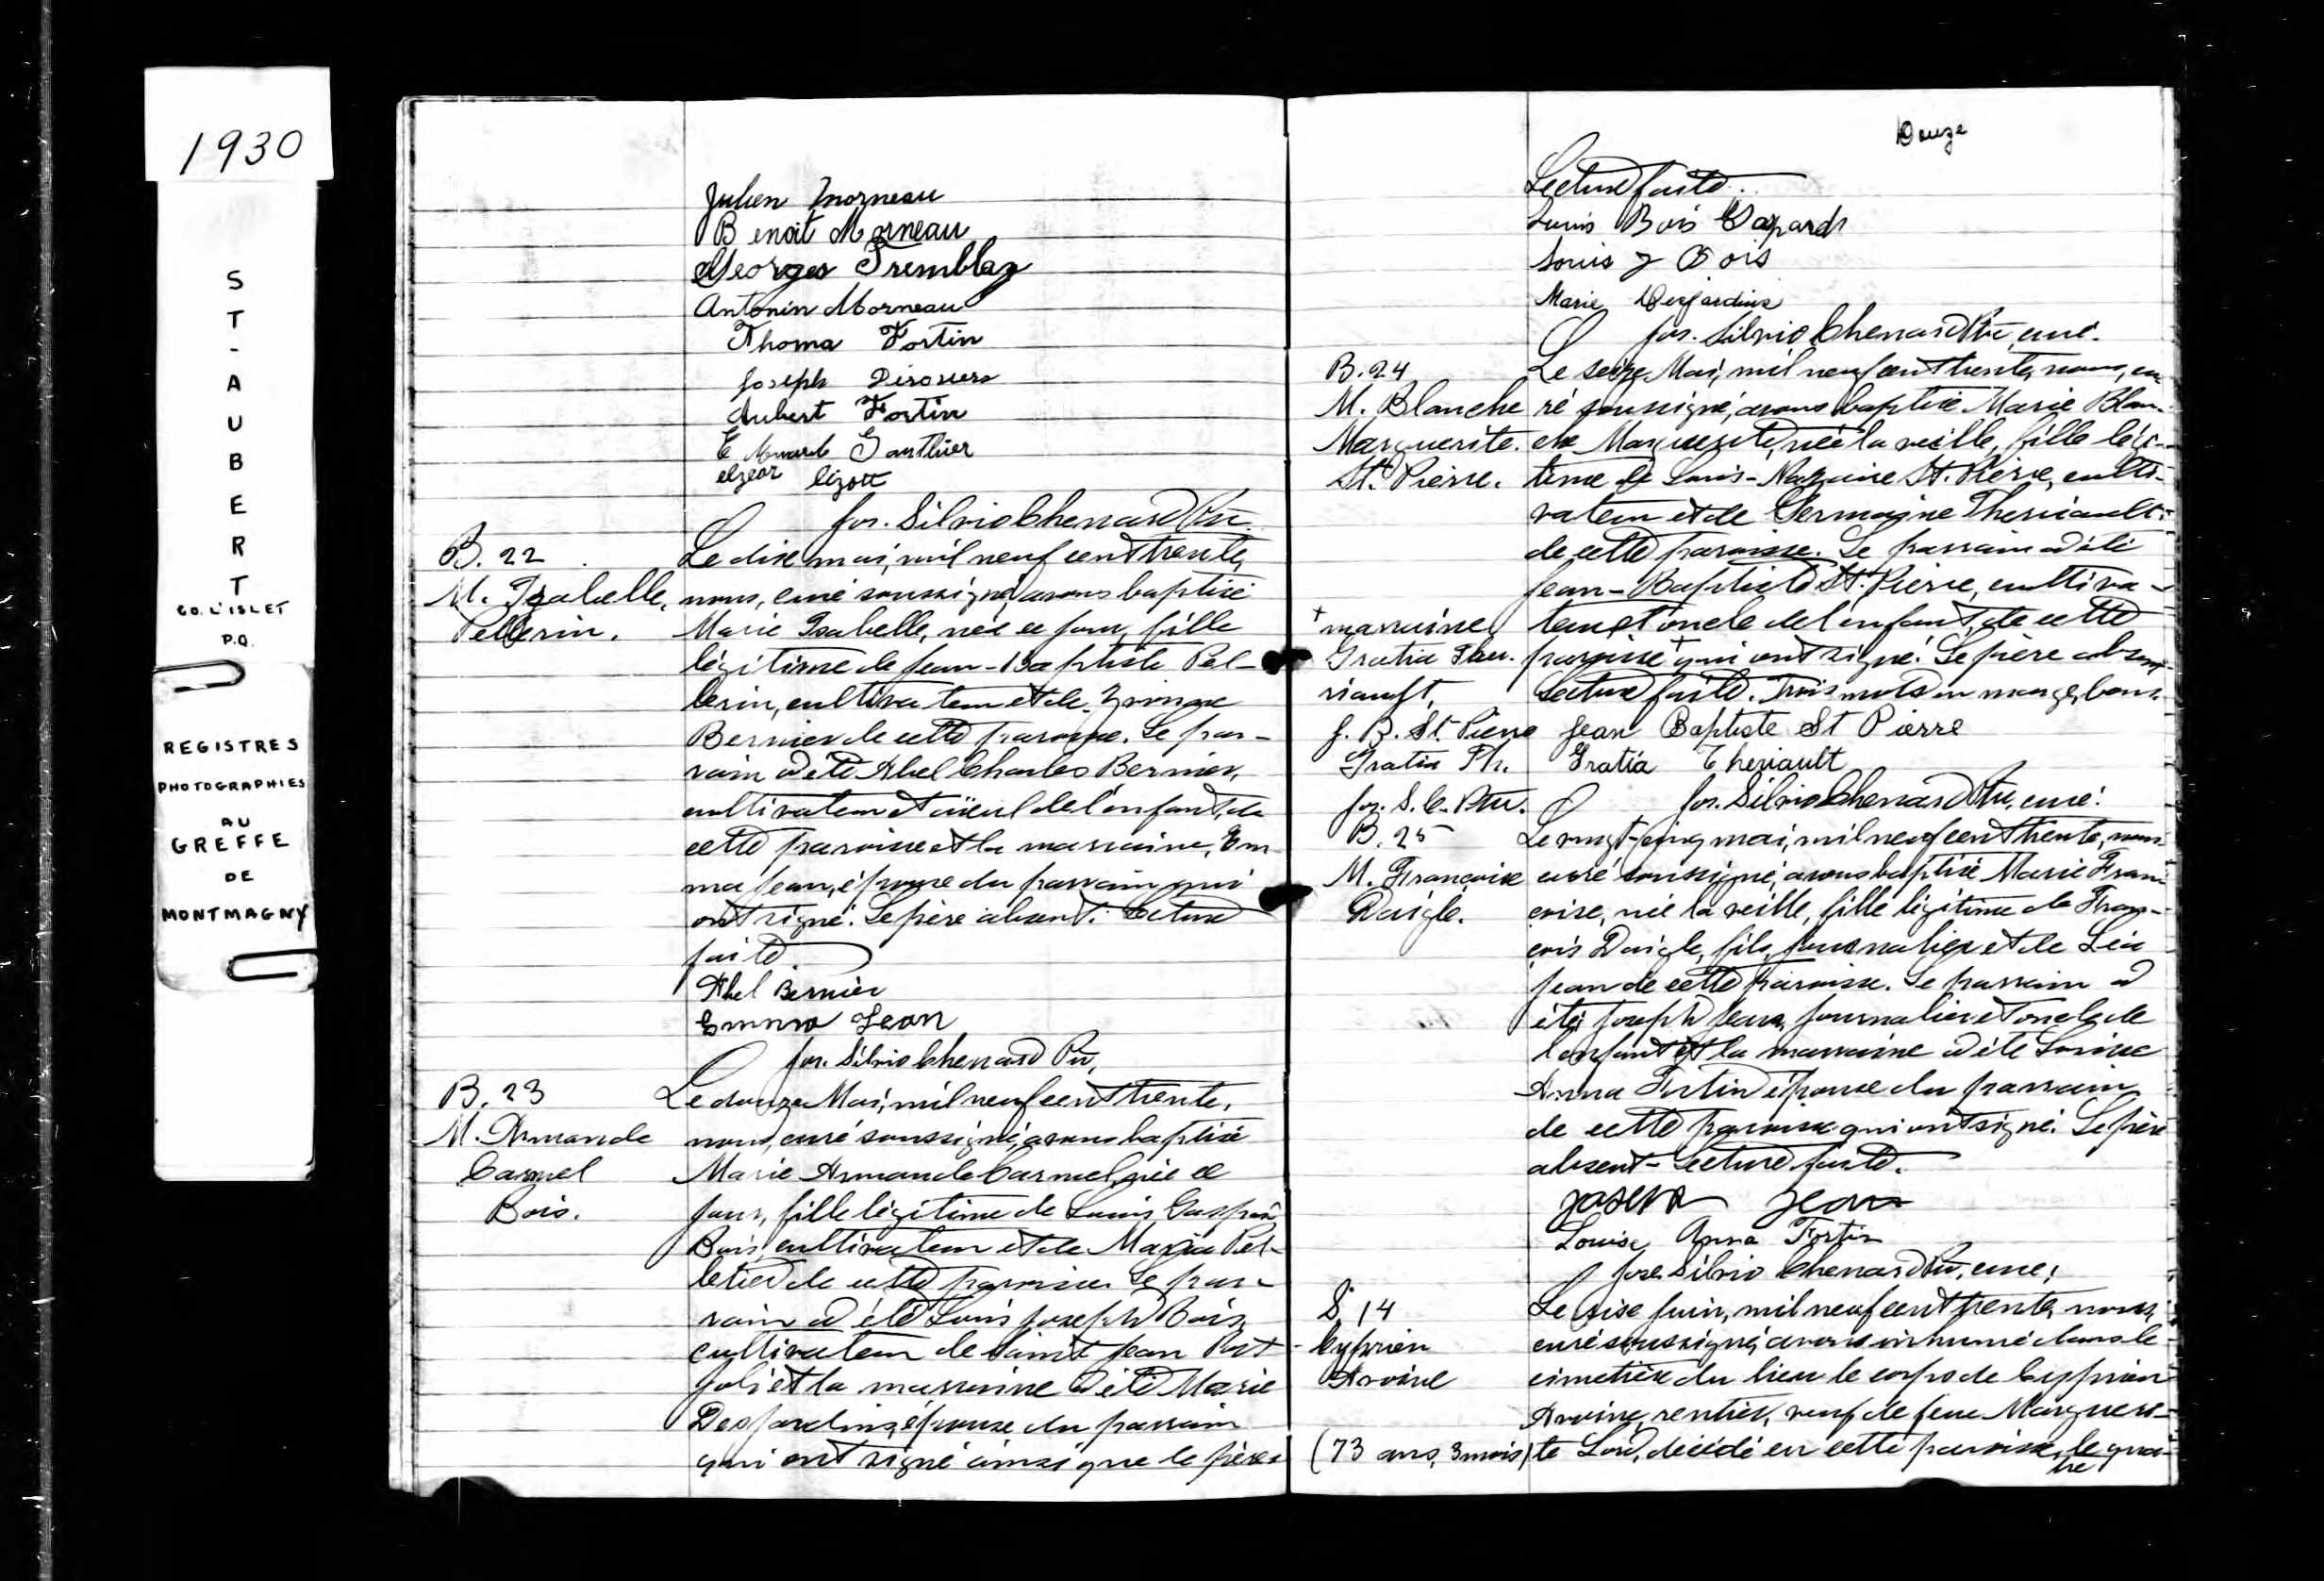 1930
ST-AUBERT
CO. L'ISLET
P.Q.
REGISTRES
PHOTOGRAPHIES
AU
GREFFE
DE
MONTMAGNY
Julien Morneau
Benoit Morneau
Georges Tremblay
Antonin Morneau
Thoma Fortin
Joseph
Aubert Fortin
Gauthier
elzear lizott
Jos. Silvio Chenard Ptr.
B. 22
M. Isabelle,
Pellerin.
Le dix mai, mil neuf cent trente,
nous, curé soussigné, avons baptisé
Marie Isabelle, née ce jour, fille
légitime de Jean-Baptiste Pel-
lerin, cultivateur et de
Bernier de cette paroisse. Le par-
rain a été Abel Charles Bernier,
cultivateur et aïeul de l'enfant, de
cette paroisse et la marraine, Em-
ma Jean, épouse du parrain qui
ont signé. Le père absent. Lecture
faite.
Abel Bernier
Emma Jean
Jos. Silvio Chenard Ptr,
B. 23
M. Armande
Carmel
Bois.
Le douze Mai, mil neuf cent trente,
nous, curé soussigné, avons baptisé
Marie Armande Carmel, née ce
jour, fille légitime de Louis Gaspard
Bois, cultivateur et de Maria Pel-
letier de cette paroisse. Le par-
rain a été Louis Joseph Bois,
cultivateur de Saint Jean Port
Joli et la marraine a été Marie
Desjardins, épouse du parrain
qui ont signé ainsi que le père.
Douze
Lecture faite.
Louis Bois Gaspard
Louis J Bois
Marie Desjardins
Jos. Silvio Chenard Ptr, curé.
B. 24
M. Blanche
Marguerite.
St. Pierre.
Le seize Mai, mil neuf cent trente, nous, cu-
ré soussigné, avons baptisé Marie Blan-
che Marguerite, née la veille, fille légi-
time de Louis-Nazaire St. Pierre, culti-
vateur et de Germaine Theriault
de cette paroisse. Le parrain a été
Jean-Baptiste St. Pierre, cultiva-
teur et oncle de l'enfant, de cette
paroisse + qui ont signé. Le père absent.
Lecture faite. Trois mots en marge, bons.
+ marraine
Gratia The-
riault,
J. B. St. Pierre
Gratia Th.
Jos. S. C. Ptr.
Jean Baptiste St Pierre
Gratia Theriault
Jos. Silvio Chenard Ptr, curé.
B. 25
M. Françoise
Daigle.
Le vingt-cinq mai, mil neuf cent trente, nous,
curé soussigné, avons baptisé Marie Fran-
çoise, née la veille, fille légitime de Fran-
çois Daigle, fils, journalier et de Léa
Jean de cette paroisse. Le parrain a
été Joseph Jean, journalier et oncle de
l'enfant et la marraine a été Louise
Anna Fortin épouse du parrain
de cette paroisse qui ont signé. Le père
absent - Lecture faite.
Joseph Jean
Louise Anna Fortin
Jos. Silvio Chenard Ptr, curé.
S. 14
Cyprien
Avoine
(73 ans, 3 mois)
Le six juin, mil neuf cent trente, nous,
curé soussigné, avons inhumé dans le
cimetière du lieu le corps de Cyprien
Avoine, rentier, veuf de feue Margueri-
te Lord, décédé en cette paroisse, le qua-
tre